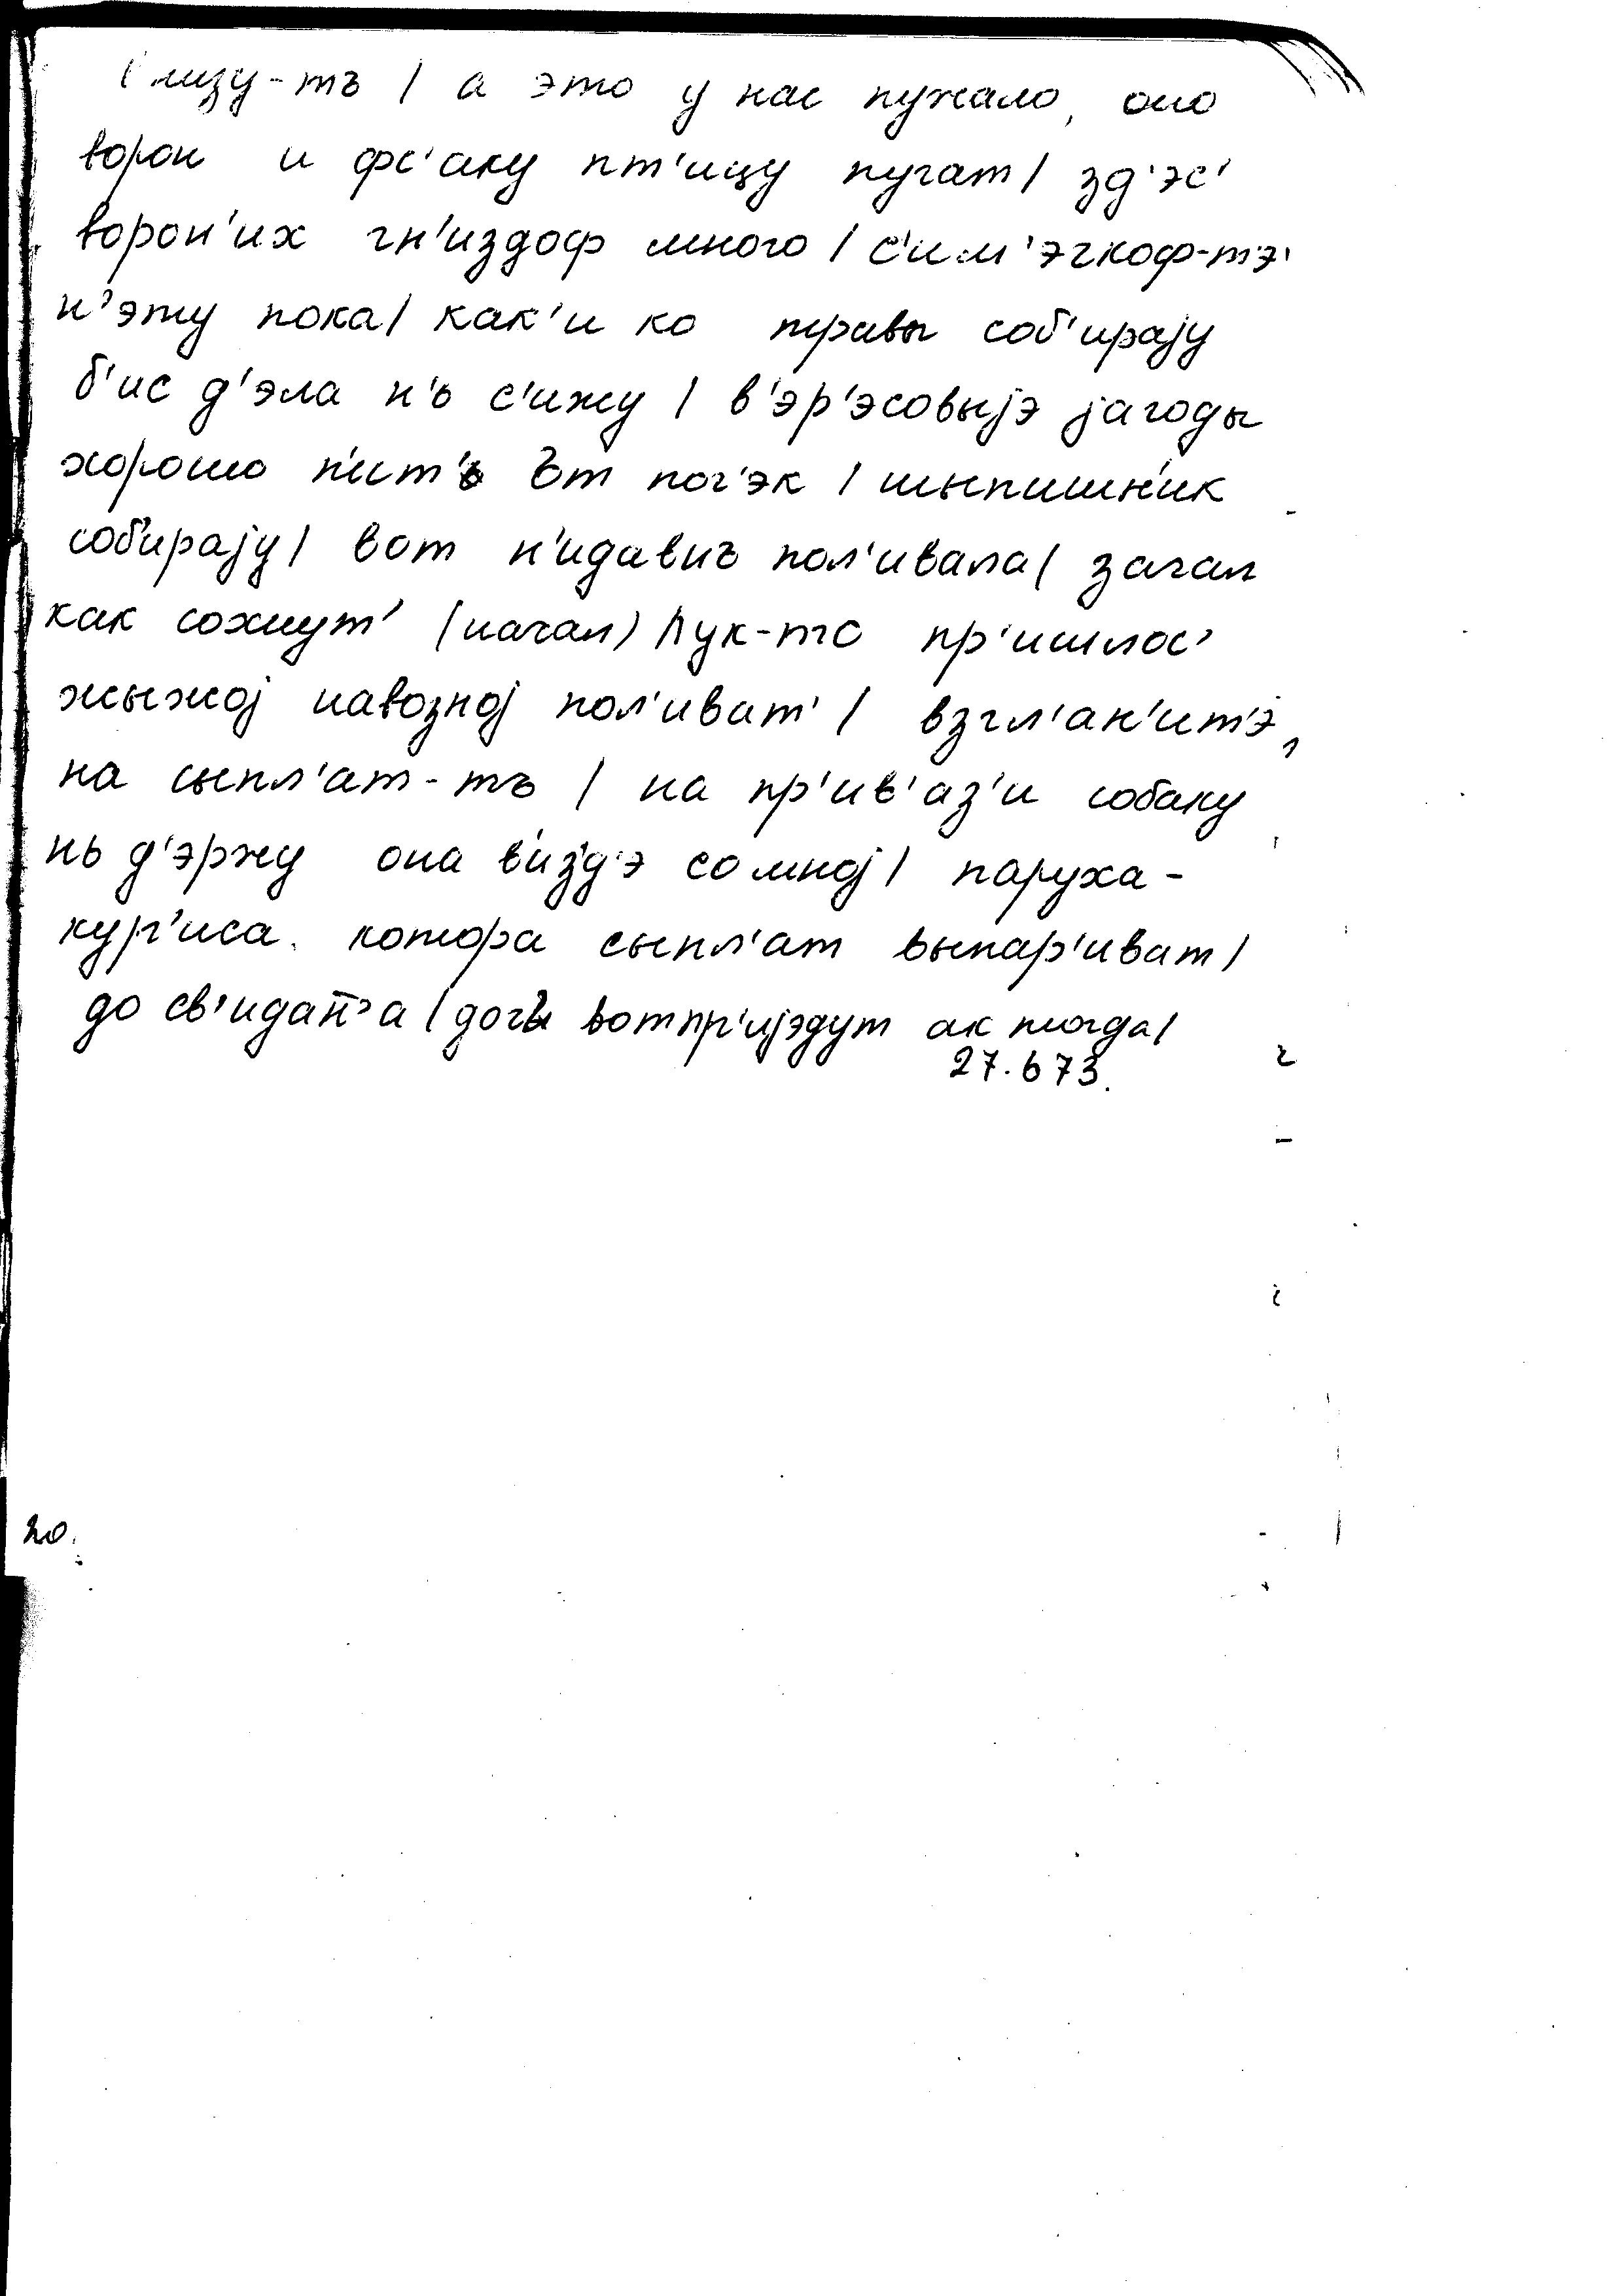 ( лизу-тъ / а это у нас пужало, оно
ворон и фс'аку пт'ицу пугат / зд'эс'
ворон'их гн'издоф много / с'им'эчкоф-т'э
н'эту пока / как'и ко травы соб'ирају
б'ис д'эла н'ь с'ижу / в'эр'эсовыјэ јагоды
хорошо п'ит'ь от поч'эк / шыпишн'ик
соб'ирају / вот н'идавнъ пол'ивала / зачал
как сохнут' (начал) лук-то пр'ишлос'
жыжој навозној пол'иват' / взгл'ан'ит'э,
на сыпл'ат-тъ / на пр'ив'аз'и собаку
нь д'эржу она в'изд'э со мној / паруха-
кур'иса. котора сыпл'ат выпар'иват /
до св'идан'а / доч'и вот пр'ијэдут ак тогда /
27.673.
20.